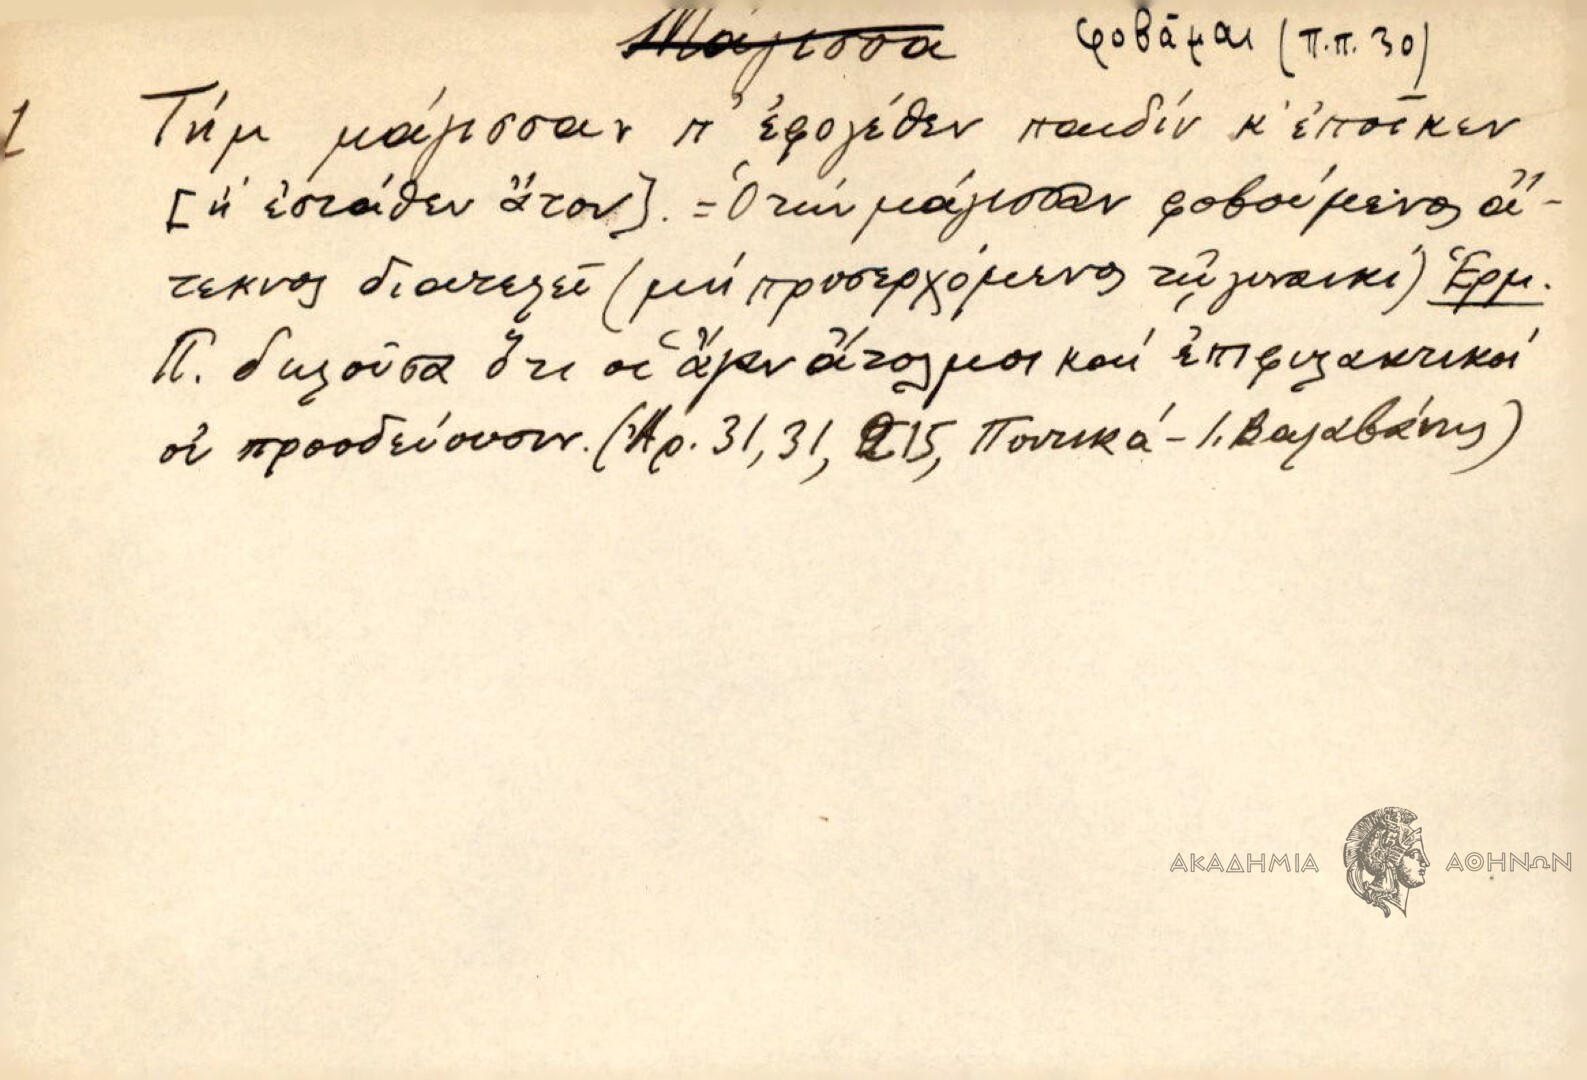 Μάγισσα φοβᾶμαι (π.π. 30)
1 Τὴμ μάγισσαν π' ἐφογέθεν παιδὶν κ' ἐποῖκεν
[κ' ἐστάθεν ἄτον]. = Ὁ τὴν μάγισσαν φοβούμενος ἄ-
τεκνος διατελεῖ (μὴ προσερχόμενος τῇ γυναικί) Ἑρμ.
Π. δηλοῦσα ὅτι οἱ ἄγαν ἄτολμοι καὶ ἐπιφυλακτικοὶ
οὐ προοδεύουσιν. (Ἀρ. 31, 31, 215, Ποντικά - Ι. Βαλαβάνης)
ΑΚΑΔΗΜΙΑ ΑΘΗΝΩΝ